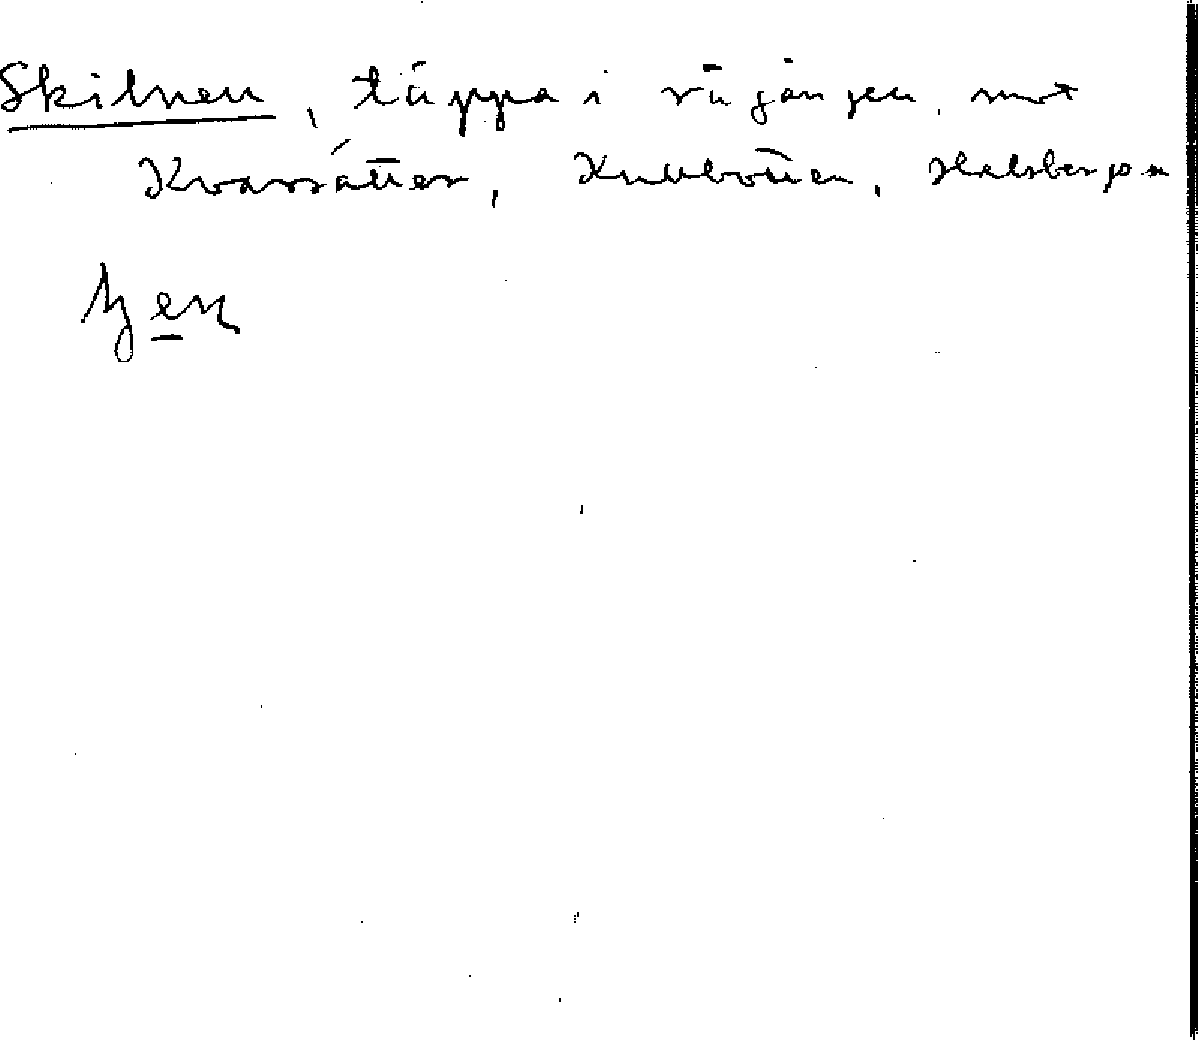 Skilnen, täppa i rågången mot
Kvarsätter, Kullbotten, Halsbergen